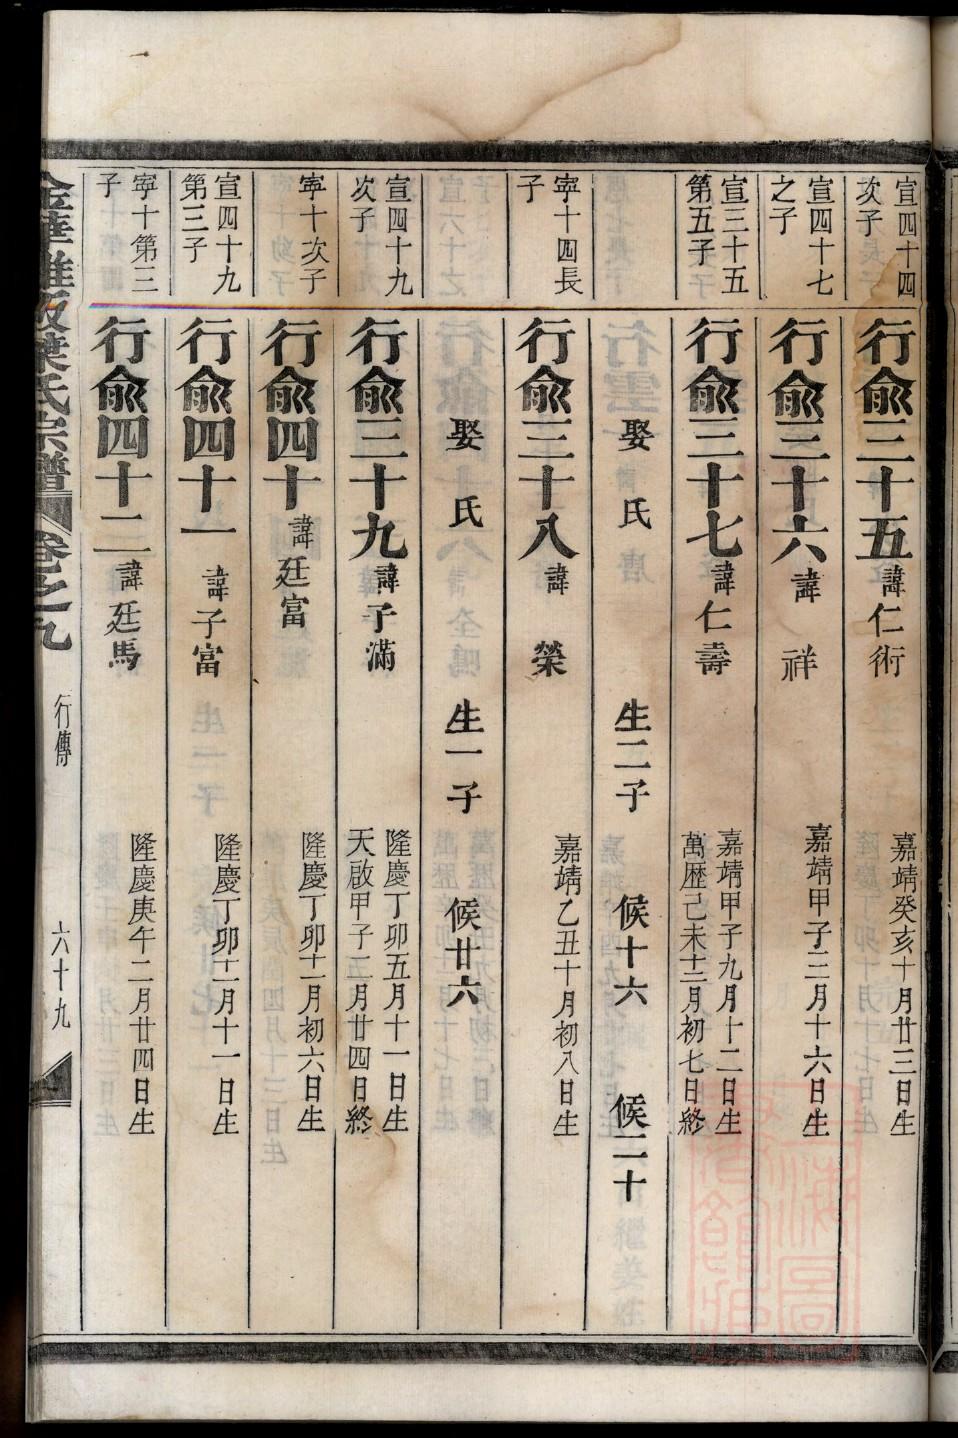 宣四十四
次子
行俞三十五 諱仁術
嘉靖癸亥十月廿三日生
宣四十七
之子
行俞三十六 諱祥
嘉靖甲子三月十六日生
宣三十五
第五子
行俞三十七 諱仁壽
嘉靖甲子九月十二日生
萬歷己未十二月初七日終
娶 氏 生二子 候十六 候二十
寧十四長
子
行俞三十八 諱榮
嘉靖乙丑十月初八日生
娶 氏 生一子 候廿六
宣四十九
次子
行俞三十九 諱子滿
隆慶丁卯五月十一日生
天啟甲子五月廿四日終
寧十次子
行俞四十 諱廷富
隆慶丁卯十一月初六日生
宣四十九
第三子
行俞四十一 諱子富
隆慶丁卯十一月十一日生
寧十第三
子
行俞四十二 諱廷馬
隆慶庚午二月廿四日生
葉氏宗譜 卷之九 行傳 六十九